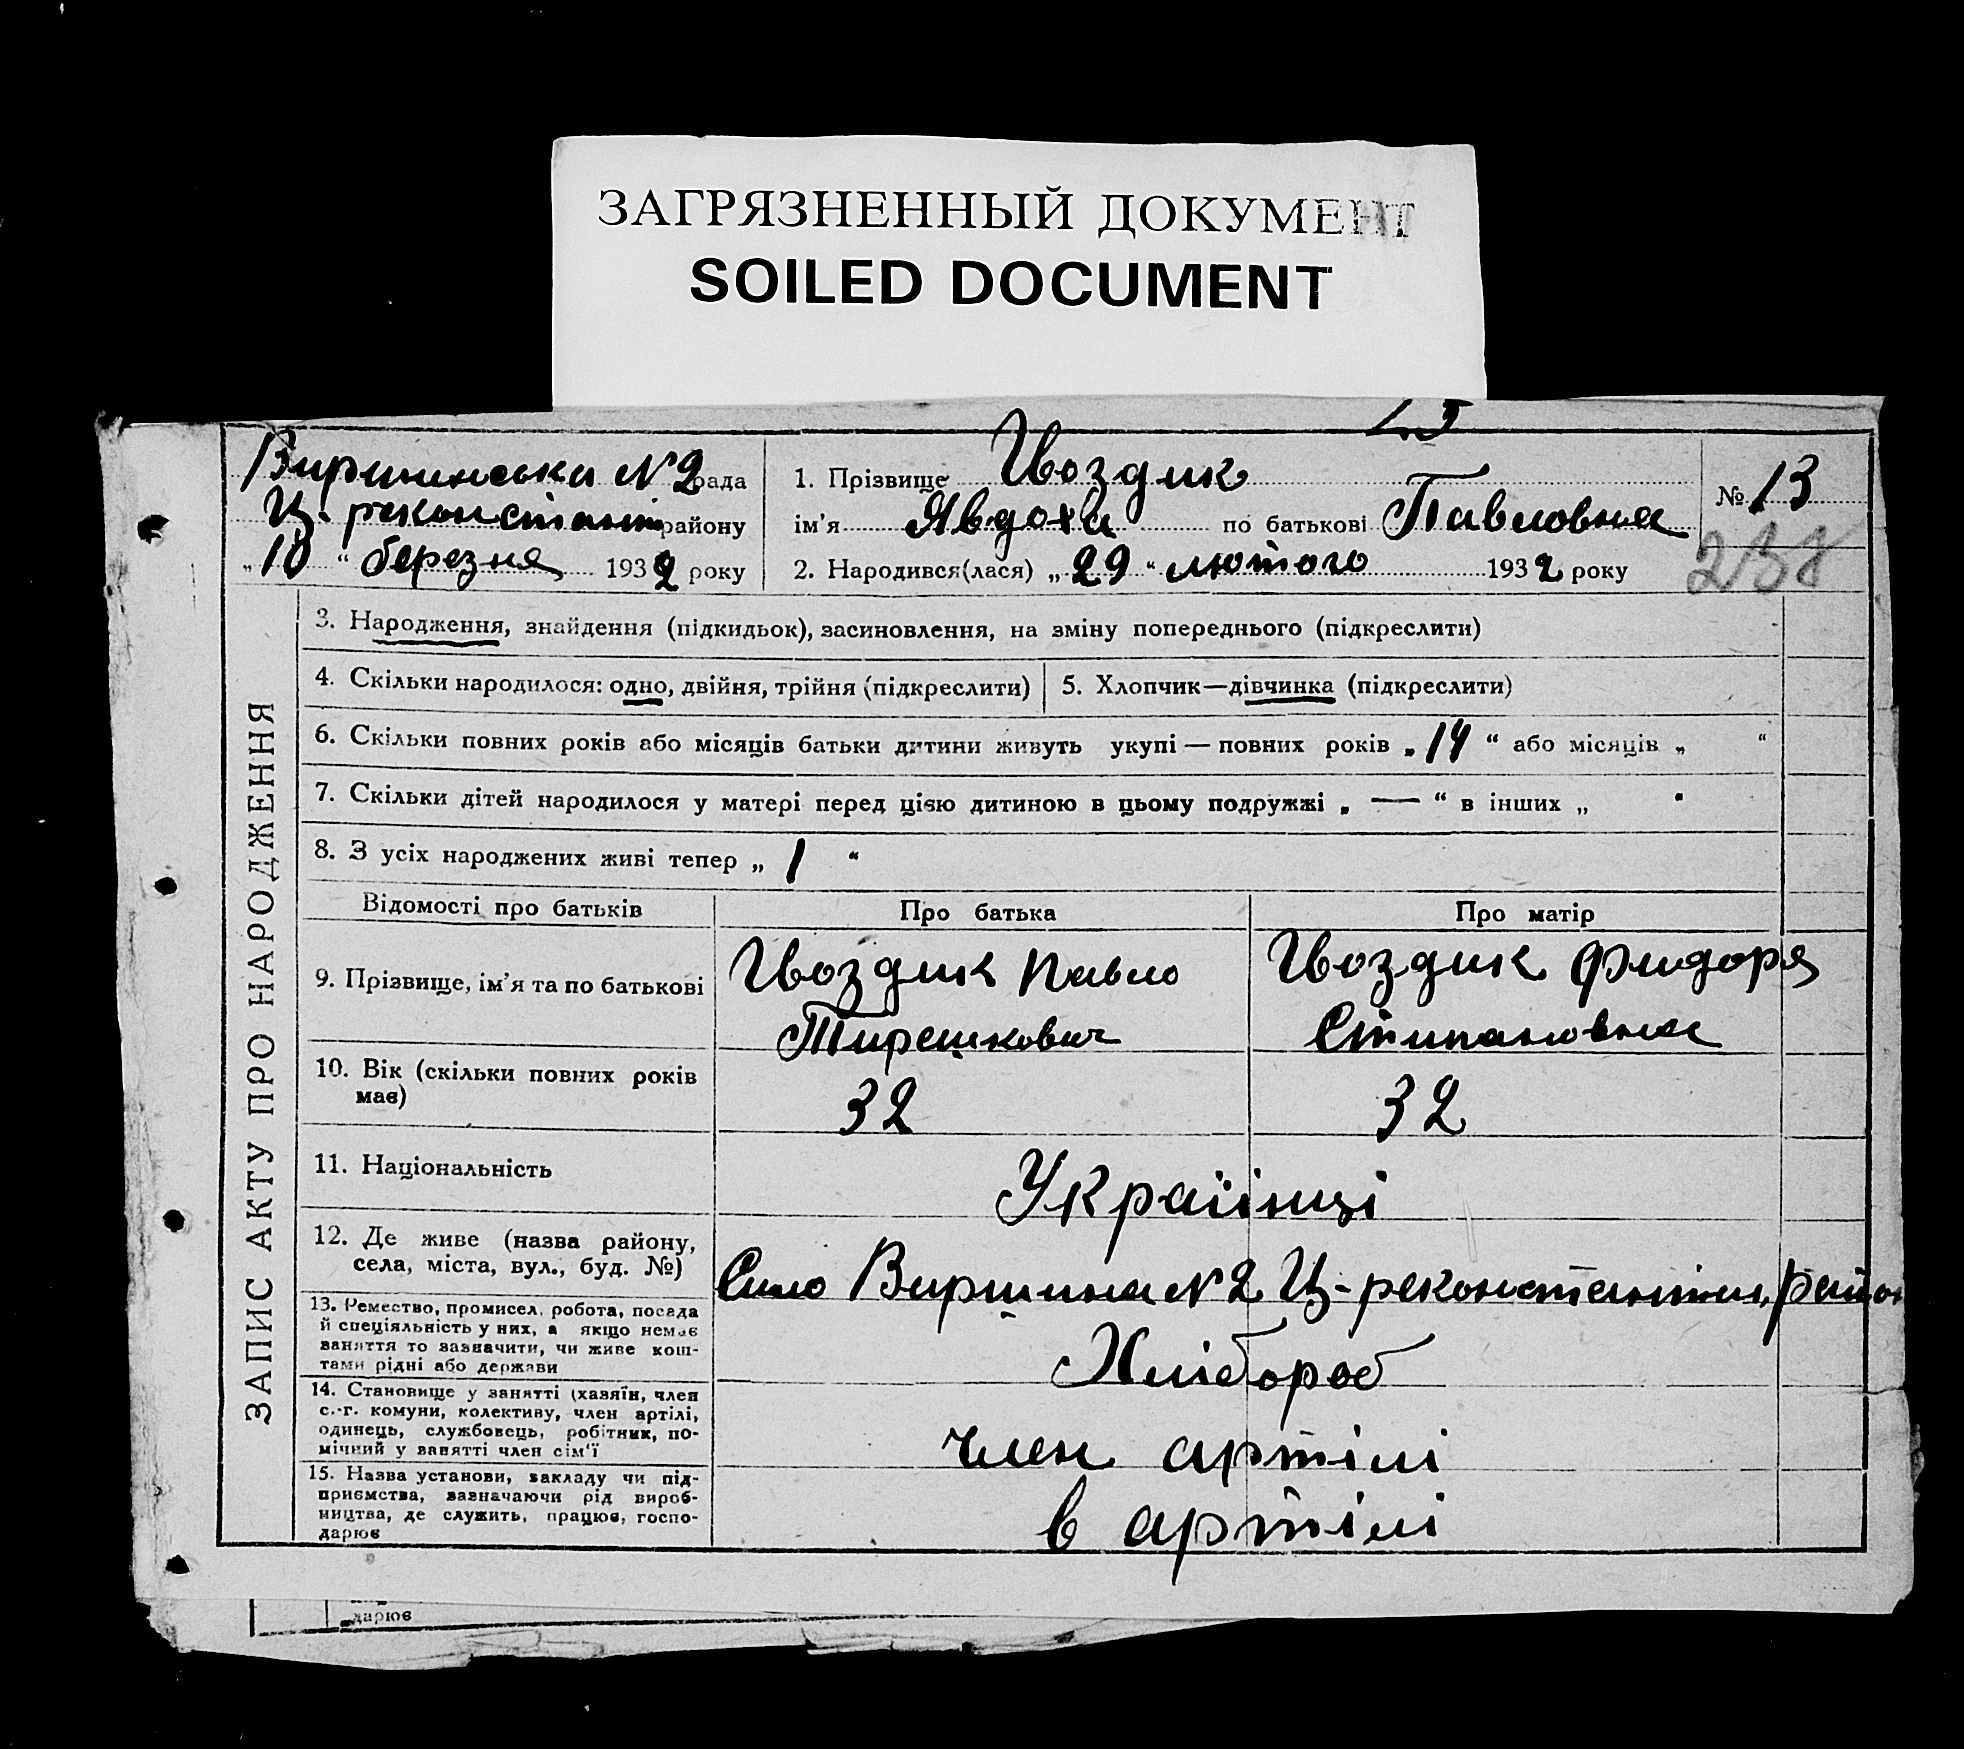 ЗАГРЯЗНЕННЫЙ ДОКУМЕНТ
SOILED DOCUMENT
Виршинська N 2 рада
Ц-реконстант району
„10“ березня 1932 року
1. Прізвище Гвоздик
ім'я Явдоха по батькові Павловна
2. Народився(лася) „29“ лютого 1932 року
№ 13
238
ЗАПИС АКТУ ПРО НАРОДЖЕННЯ
3. Народження, знайдення (підкидьок), засиновлення, на зміну попереднього (підкреслити)
4. Скільки народилося: одно, двійня, трійня (підкреслити)
5. Хлопчик—дівчинка (підкреслити)
6. Скільки повних років або місяців батьки дитини живуть укупі — повних років „14“ або місяців „ “
7. Скільки дітей народилося у матері перед цією дитиною в цьому подружжі „—“ в інших „ “
8. З усіх народжених живі тепер „1“
Відомості про батьків
Про батька
Про матір
9. Прізвище, ім'я та по батькові
Гвоздик Павло
Тирешкович
Гвоздик Фидоря
Стипановна
10. Вік (скільки повних років
має)
32
32
11. Національність
Українці
12. Де живе (назва району,
села, міста, вул., буд. №)
Сило Виршина N 2 Ц-реконстант район
13. Ремество, промисел, робота, посада
й спеціяльність у них, а якщо немає
заняття то зазначити, чи живе кош-
тами рідні або держави
Хлібороб
14. Становище у занятті (хазяїн, член
с.-г. комуни, колективу, член артілі,
одинець, службовець, робітник, по-
мічний у занятті член сім'ї
член артілі
15. Назва установи, закладу чи під-
приємства, зазначаючи рід вироб-
ництва, де служить, працює, госпо-
дарює
в артілі
дарює